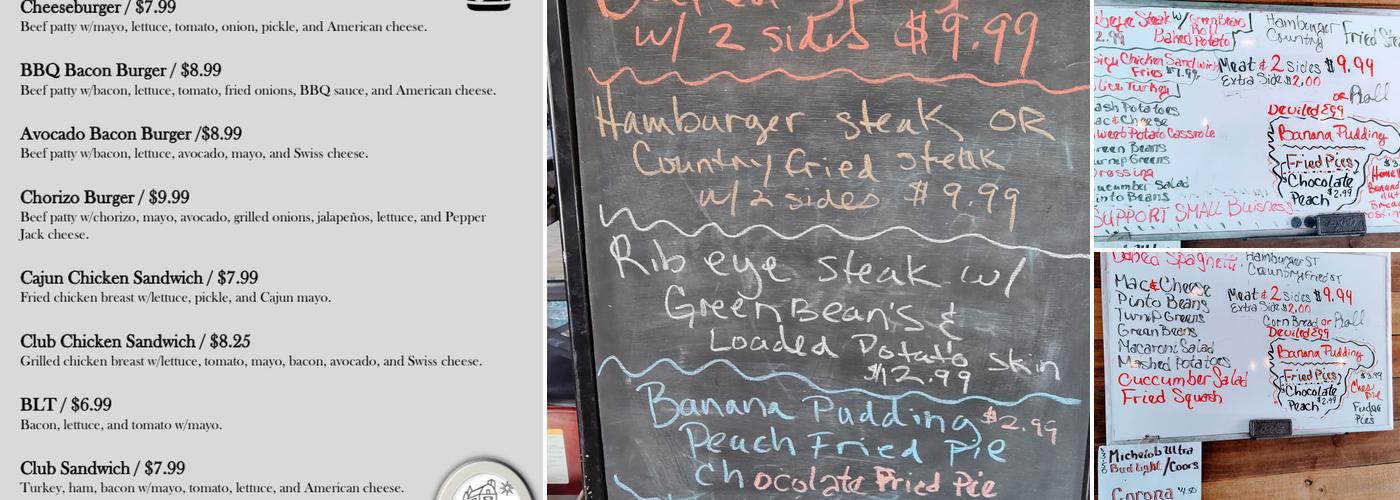 Cheeseburger / $7.99
Beef patty w/mayo, lettuce, tomato, onion, pickle, and American cheese.
BBQ Bacon Burger / $8.99
Beef patty w/bacon, lettuce, tomato, fried onions, BBQ sauce, and American cheese.
Avocado Bacon Burger /$8.99
Beef patty w/bacon, lettuce, avocado, mayo, and Swiss cheese.
Chorizo Burger / $9.99
Beef patty w/chorizo, mayo, avocado, grilled onions, jalapeños, lettuce, and Pepper
Jack cheese.
Cajun Chicken Sandwich / $7.99
Fried chicken breast w/lettuce, pickle, and Cajun mayo.
Club Chicken Sandwich / $8.25
Grilled chicken breast w/lettuce, tomato, mayo, bacon, avocado, and Swiss cheese.
BLT / $6.99
Bacon, lettuce, and tomato w/mayo.
Club Sandwich / $7.99
Turkey, ham, bacon w/mayo, tomato, lettuce, and American cheese.
w/ 2 sides $9.99
Hamburger steak OR
Country fried steak
w/ 2 sides $9.99
Rib eye steak w/
Green Bean's &
Loaded Potato skin
$12.99
Banana Pudding $2.99
Peach Fried Pie
Chocolate Fried Pie
Steak w/ Green Beans
Roll
Baked Potato
Chicken Sandwich
Fries $7.99
Turkey
Potatoes
Cheese
Sweet Potato Casserole
Green Beans
Turnip Greens
Dressing
Cucumber Salad
Pinto Beans
SUPPORT SMALL Buisness
Hamburger
Country Fried
Meat & 2 Sides $9.99
Extra Side $2.00
OR Roll
Deviled Egg
Banana Pudding
Fried Pies
Chocolate
$2.99
Peach
Baked Spaghetti
Mac & Cheese
Pinto Beans
Turnip Greens
Green Beans
Macaroni Salad
Mashed Potatoes
Cuccumber Salad
Fried Squash
Hamburger ST
Country Fried ST
Meat & 2 Sides $9.99
Extra Side $2.00
Corn Bread or Roll
Deviled Egg
Banana Pudding
Fried Pies
Chocolate
$2.99
Peach
$3.99
Ches
Pie
Fudge
Pies
Michelob Ultra
Bud Light /Coors
Corona